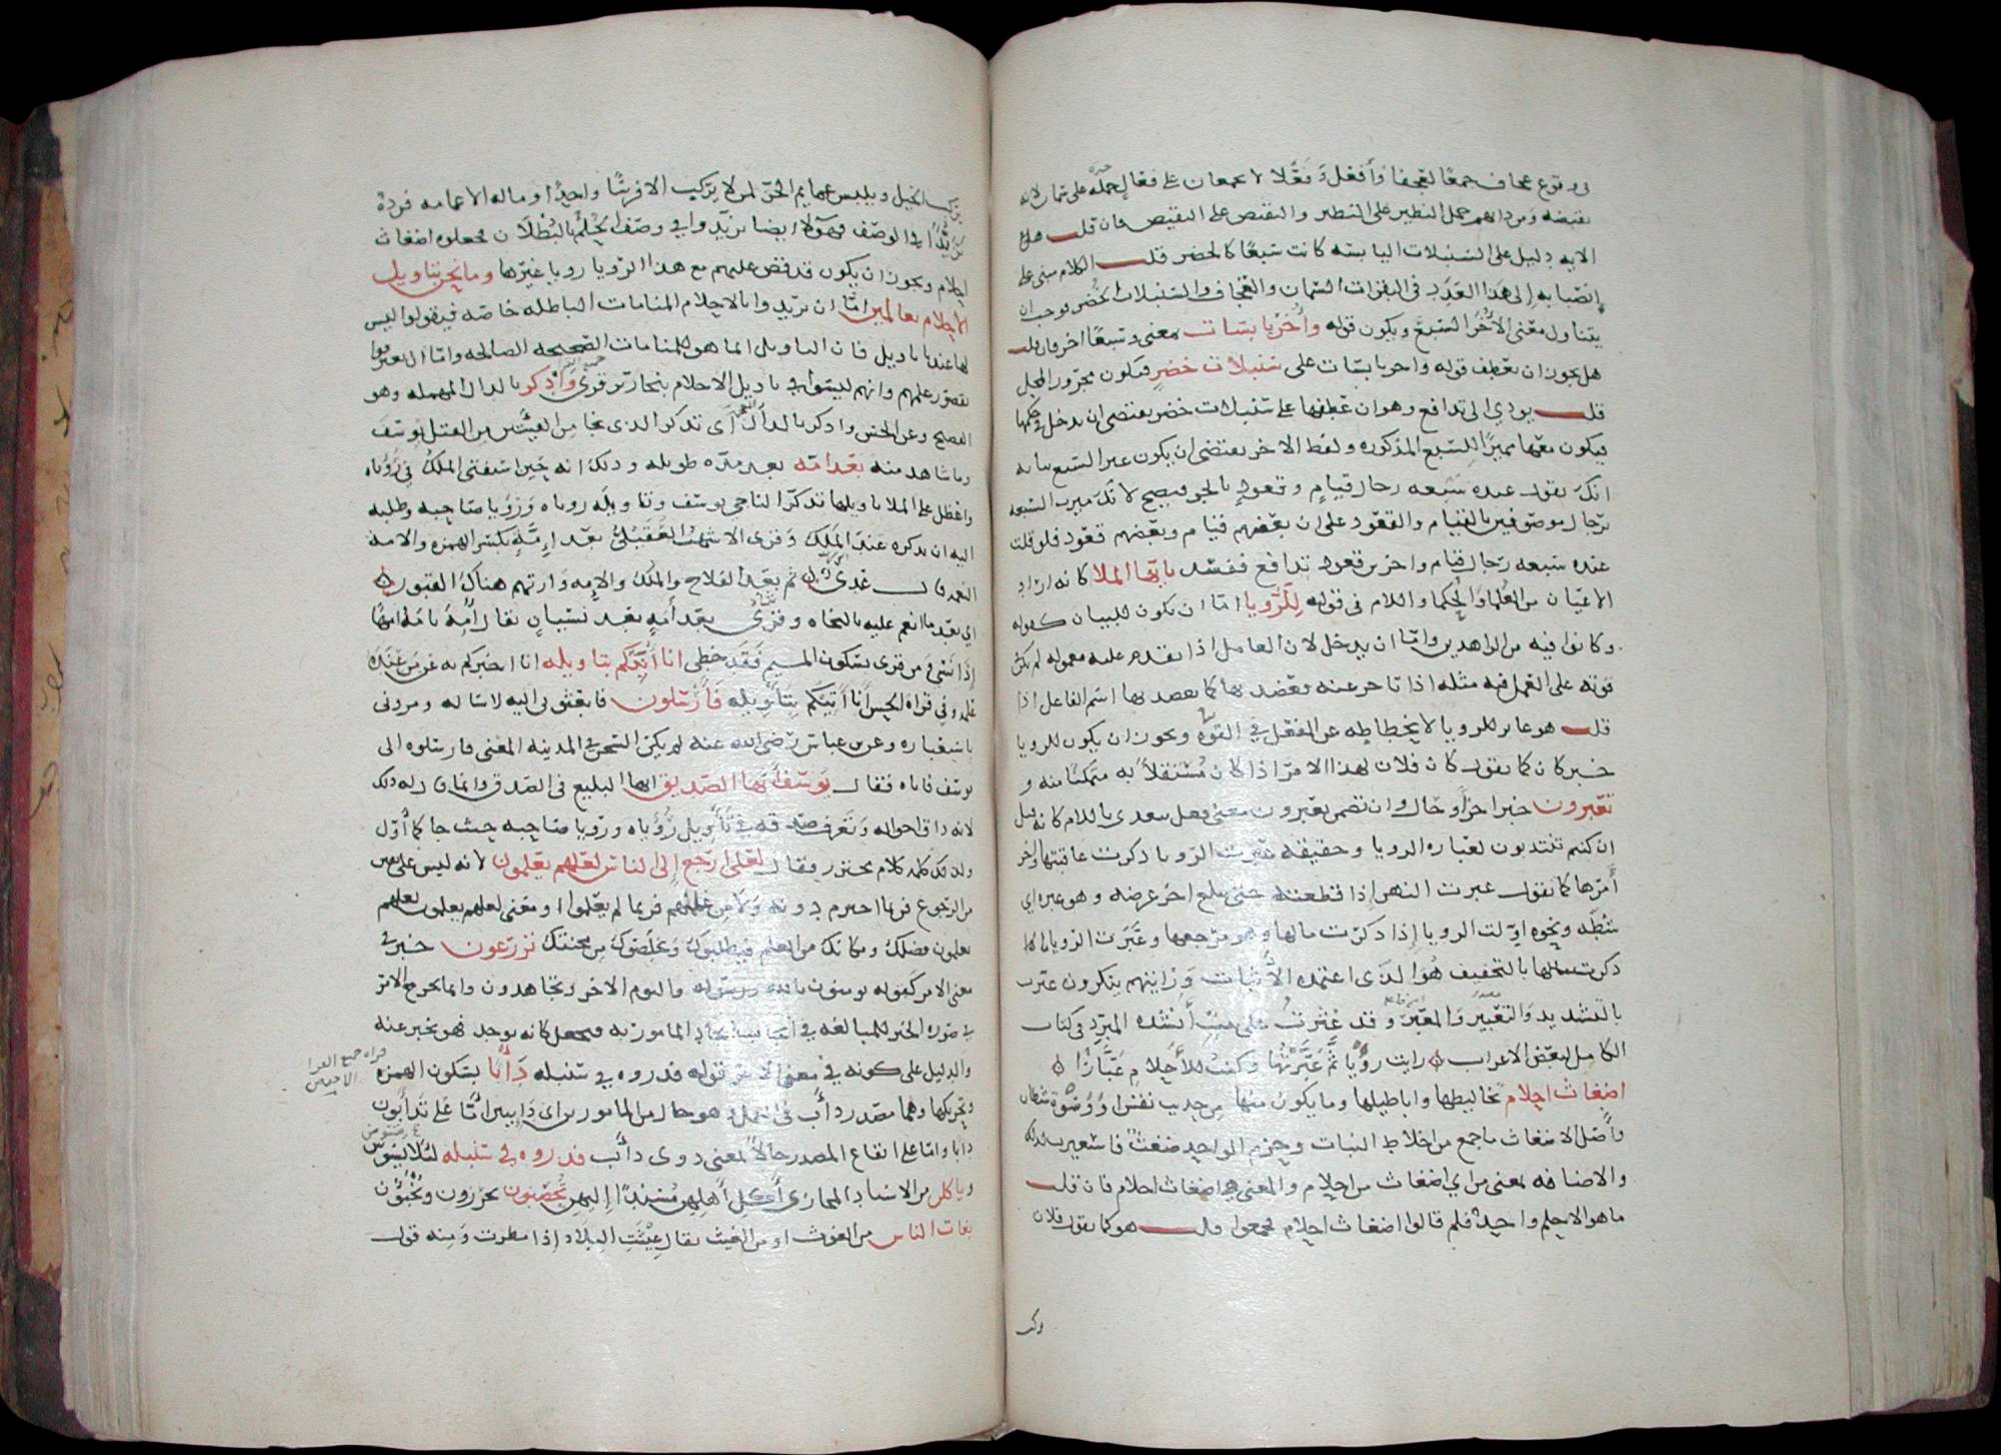 في وقوع عجاف جمعا لعجفا وأفعل وفعلا لا يجمعان على فعال حمله على سمان لانه
نقيضه ومن دابهم حمل النظير على النظير والنقيض على النقيض فان قلت هل في
الايه دليل على السنبلات اليابسه كانت سبعا كالخضر قلت الكلام مبنى على
انصبابه إلى هذا العدد في البقرات السمان والعجاف والسنبلات الخضر فوجب ان
يتناول معنى الأخر السبع ويكون قوله وأخر يابسات بمعنى وسبعا اخر فان قلت
هل يجوز ان يعطف قوله واخر يابسات على سنبلات خضر فيكون مجرور المحل
قلت يودي الى تدافع وهو ان عطفها على سنبلات خضر يقتضى ان يدخل في حكمها
فيكون معها مميزا للسبع المذكوره ولفظ الاخر يقتضى ان يكون غير السبع بيانه
انك تقول عنده سبعه رجال قيام وقعود بالجر فيصح لانك ميزت السبعه
برجال موصوفين بالقيام والقعود على ان بعضهم قيام وبعضهم قعود فلو قلت
عنده سبعه رجال قيام واخرين قعود تدافع ففسد يا ايها الملا كانه اراد
الاعيان من العلما والحكما واللام في قوله للرؤيا اما ان تكون للبيان كقوله
وكانوا فيه من الزاهدين واما ان يدخل لان العامل اذا تقدم عليه معموله لم يكن
قوته على العمل فيه مثله اذا تاخر عنه فعضد بها كما يعضد بها اسم الفاعل اذا
قلت هو عابر للرويا لانحطاطه عن الفعل في القوة ويجوز ان يكون للرويا
خبر كان كما تقول كان فلان لهذا الامر اذا كان مستقلا به متمكنا منه و
تعبرون خبرا اخر او حال وان تضمن تعبرون معنى فعل يتعدى باللام كانه قيل
ان كنتم تنتدبون لعباره الرويا وحقيقه عبرت الرويا ذكرت عاقبتها واخر
أمرها كما تقول عبرت النهر إذا قطعته حتى تبلغ اخر عرضه وهو عبره اي
شطه ونحوه اولت الرويا إذا ذكرت مالها وهو مرجعها وعبرت الرويا
بالتخفيف هو الذى اعتمده الأثبات ورايتهم ينكرون عبرت
بالتشديد والتعبير والمعبر وقد عثرت على بيت أنشده المبرد في كتاب
الكامل لبعض الاعراب رايت رؤيا ثم عبرتها وكنت للأحلام عبارا
اضغاث احلام تخاليطها واباطيلها وما يكون منها من حديث نفس او وسوسة شيطان
وأصل الاضغاث ما جمع من اخلاط النبات وحزم الواحد ضغث فاستعيرت لذلك
والاضافه بمعنى من اي اضغاث من احلام والمعنى هي اضغاث احلام فان قلت
ما هو الا حلم واحد فلم قالوا اضغاث احلام فجمعوا قلت هو كما تقول فلان
يركب الخيل ويلبس عمايم الخز لمن لا يركب الا فرسا واحدا وما له الا عمامه فردة
تزيدا في الوصف فهولا ايضا تزيدوا في وصف الحلم بالبطلان فجعلوه اضغاث
احلام ويجوز ان يكون قد قص عليهم مع هذا الرويا رويا غيرها وما نحن بتاويل
الأحلام بعالمين اما ان يريدوا بالاحلام المنامات الباطله خاصه فيقولوا ليس
لها عندنا تاويل فان التاويل انما هو للمنامات الصحيحه الصالحه واما ان يعترفوا
بقصور علمهم وانهم ليسوا في تاويل الاحلام بنحارير قرى وادكر بالدال المهمله وهو
الفصيح وعن الحسن واذكر بالذال المعجمه أي تذكر الذى نجا من الفتيين من القتل يوسف
وما شاهد منه بعد امة بعد مده طويله وذلك انه حين استفتى الملك في رؤياه
واعضل على الملا تاويلها تذكر الناجي يوسف وتاويله روياه ورؤيا صاحبه وطلبه
اليه ان يذكره عند الملك وقرى الاشهب العقيلي بعد إمة بكسر الهمزه والامه
النعمه قال عدى ثم بعد الفلاح والملك والامه وارتهم هناك القبور
اي بعد ما انعم عليه بالنجاه وقرى بعد أمه بعد نسيان يقال أمه يامه امها
إذا نسى ومن قرى بسكون الميم فقد خطى انا أنبئكم بتاويله انا اخبركم به عمن عنده
علمه وفي قراة الحسن أنا آتيكم بتأويله فأرسلون فابعثوني اليه لاساله ومرونى
باستعباره وعن ابن عباس رضى الله عنه لم يكن السجن في المدينه المعنى فارسلوه الى
يوسف فاتاه فقال يوسف أيها الصديق ايها البليغ في الصدق وانما قال له ذلك
لانه ذاق احواله وتعرف صدقه في تأويل رؤياه ورويا صاحبه حيث جا كما أول
ولذلك كلمه كلام محترز فقال لعلى ارجع إلى الناس لعلهم يعلمون لانه ليس على يقين
من الرجوع فربما اخترم دونه ولا من علمهم فربما لم يعلموا او معنى لعلهم يعلمون لعلهم
يعلمون فضلك ومكانك من العلم فيطلبوك ويخلصوك من محنتك تزرعون خبر في
معنى الامر كقوله تومنون بالله ورسوله واليوم الاخر وتجاهدون وانما يخرج الامر
في صوره الخبر للمبالغه في ايجاب ايجاد المامور به فيجعل كانه يوجد فهو يخبر عنه
والدليل على كونه في معنى الامر قوله فذروه في سنبله دأبا بسكون الهمزه
وتحريكها وهما مصدر دأب في العمل وهو حال من المامورين اى دايبين اما على تدأبون
دابا واما على ايقاع المصدر حالا بمعنى ذوى دأب فذروه في سنبله لئلا يتسوس
وياكلن من الاسناد المجازى أكل أهلهن مسندا إليهن تحصنون تحرزون وتخبؤن
يغاث الناس من الغوث او من الغيث يقال غيثت البلاد إذا مطرت ومنه قول